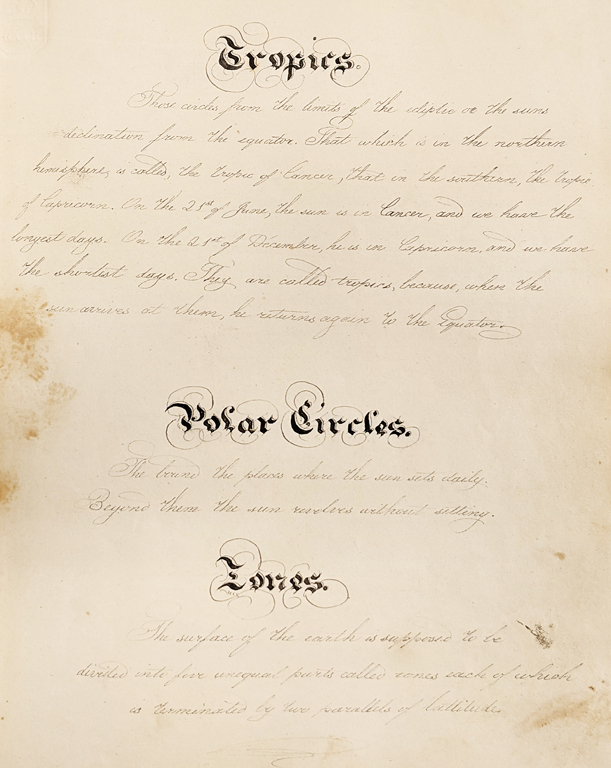 Tropics.
These circles from the limits of the ecliptic or the suns
declination from the equator. That which is in the northern
hemisphere, is called, the tropic of Cancer, that in the southern, the tropic
of Capricorn. On the 21st of June, the sun is in Cancer, and we have the
longest days. On the 21st of December, he is in Capricorn, and we have
the shortest days. They are called tropics, because, when the
sun arrives at them, he returns again to the Equator.
Polar Circles.
The bound the places where the sun sets daily.
Beyond them the sun revolves without setting.
Zones.
The surface of the earth is supposed to be
divided into five unequal parts called zones each of which
is terminated by two parallels of lattitude.